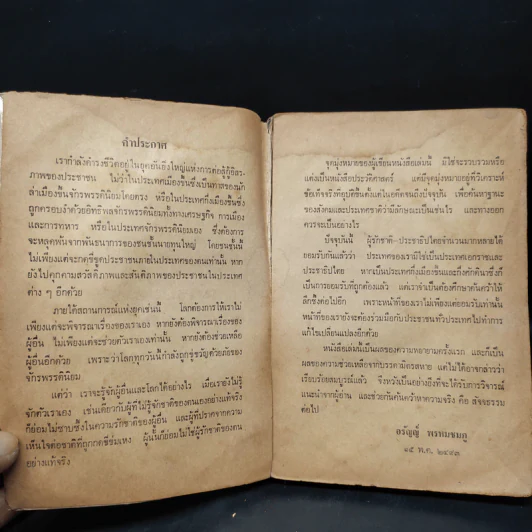 คำประกาศ
เรากำลังดำรงชีวิตอยู่ในยุคอันยิ่งใหญ่แห่งการต่อสู้กู้อิสร-
ภาพของประชาชน ไม่ว่าในประเทศเมืองขึ้นซึ่งเป็นทาสของนัก
ล่าเมืองขึ้นจักรพรรดินิยมโดยตรง หรือในประเทศกึ่งเมืองขึ้นซึ่ง
ถูกครอบงำด้วยอิทธิพลจักรพรรดินิยมทั้งทางเศรษฐกิจ การเมือง
และการทหาร หรือในประเทศจักรพรรดินิยมเอง ซึ่งต้องการ
จะหลุดพ้นจากพันธนาการของชนชั้นนายทุนใหญ่ โดยชนชั้นนี้
ไม่เพียงแต่จะกดขี่ขูดประชาชนภายในประเทศของตนเท่านั้น หาก
ยังไปคุกคามสวัสดิภาพและสันติภาพของประชาชนในประเทศ
ต่าง ๆ อีกด้วย
ภายใต้สถานการณ์แห่งยุคเช่นนี้ โลกต้องการให้เราไม่
เพียงแต่จะพิจารณาเรื่องของเราเอง หากยังต้องพิจารณาเรื่องของ
ผู้อื่น ไม่เพียงแต่จะช่วยตัวเราเองเท่านั้น หากยังต้องช่วยเหลือ
ผู้อื่นอีกด้วย เพราะว่าโลกทุกวันนี้กำลังถูกขู่ขวัญด้วยภัยของ
จักรพรรดินิยม
แต่ว่า เราจะรู้จักผู้อื่นและโลกได้อย่างไร เมื่อเรายังไม่รู้
จักตัวเราเอง เช่นเดียวกับผู้ที่ไม่รู้จักชาติของตนเองอย่างแท้จริง
ก็ย่อมไม่ซาบซึ้งในความรักชาติของผู้อื่น และผู้ที่ปราศจากความ
เห็นใจต่อชาติที่ถูกกดขี่ข่มเหง ผู้นั้นก็ย่อมไม่ใช่ผู้รักชาติของตน
อย่างแท้จริง
จุดมุ่งหมายของผู้เขียนหนังสือเล่มนี้ มิใช่จะรวบรวมหรือ
แต่งเป็นหนังสือประวัติศาสตร์ แต่มีจุดมุ่งหมายอยู่ที่วิเคราะห์
ข้อเท็จจริงที่อุบัติขึ้นตั้งแต่ในอดีตจนถึงปัจจุบัน เพื่อค้นหาฐานะ
ของสังคมและประเทศชาติว่ามีลักษณะเป็นเช่นไร และทางออก
ควรจะเป็นอย่างไร
ปัจจุบันนี้ ผู้รักชาติ-ประชาธิปไตยจำนวนมากหลายได้
ยอมรับกันแล้วว่า ประเทศของเรามิใช่เป็นประเทศเอกราชและ
ประชาธิปไตย หากเป็นประเทศกึ่งเมืองขึ้นและกึ่งศักดินาซึ่งก็
เป็นการยอมรับที่ถูกต้องแล้ว แต่เราจำเป็นต้องศึกษาค้นคว้าให้
ลึกซึ้งต่อไปอีก เพราะหน้าที่ของเราไม่เพียงแต่ยอมรับเท่านั้น
หน้าที่ของเรายังจะต้องร่วมมือกับประชาชนทั่วประเทศไปทำการ
แก้ไขเปลี่ยนแปลงอีกด้วย
หนังสือเล่มนี้เป็นผลของความพยายามครั้งแรก และก็เป็น
ผลของความช่วยเหลือจากบรรดามิตรสหาย แต่ไม่ได้อวดกล้าว่า
เรียบร้อยสมบูรณ์แล้ว จึงหวังเป็นอย่างยิ่งที่จะได้รับการวิจารณ์
แนะนำจากผู้อ่าน และช่วยกันค้นคว้าหาความจริง คือ สัจจธรรม
ต่อไป
อรัญญ์ พรหมชมภู
๑๕ พ.ค. ๒๔๙๓